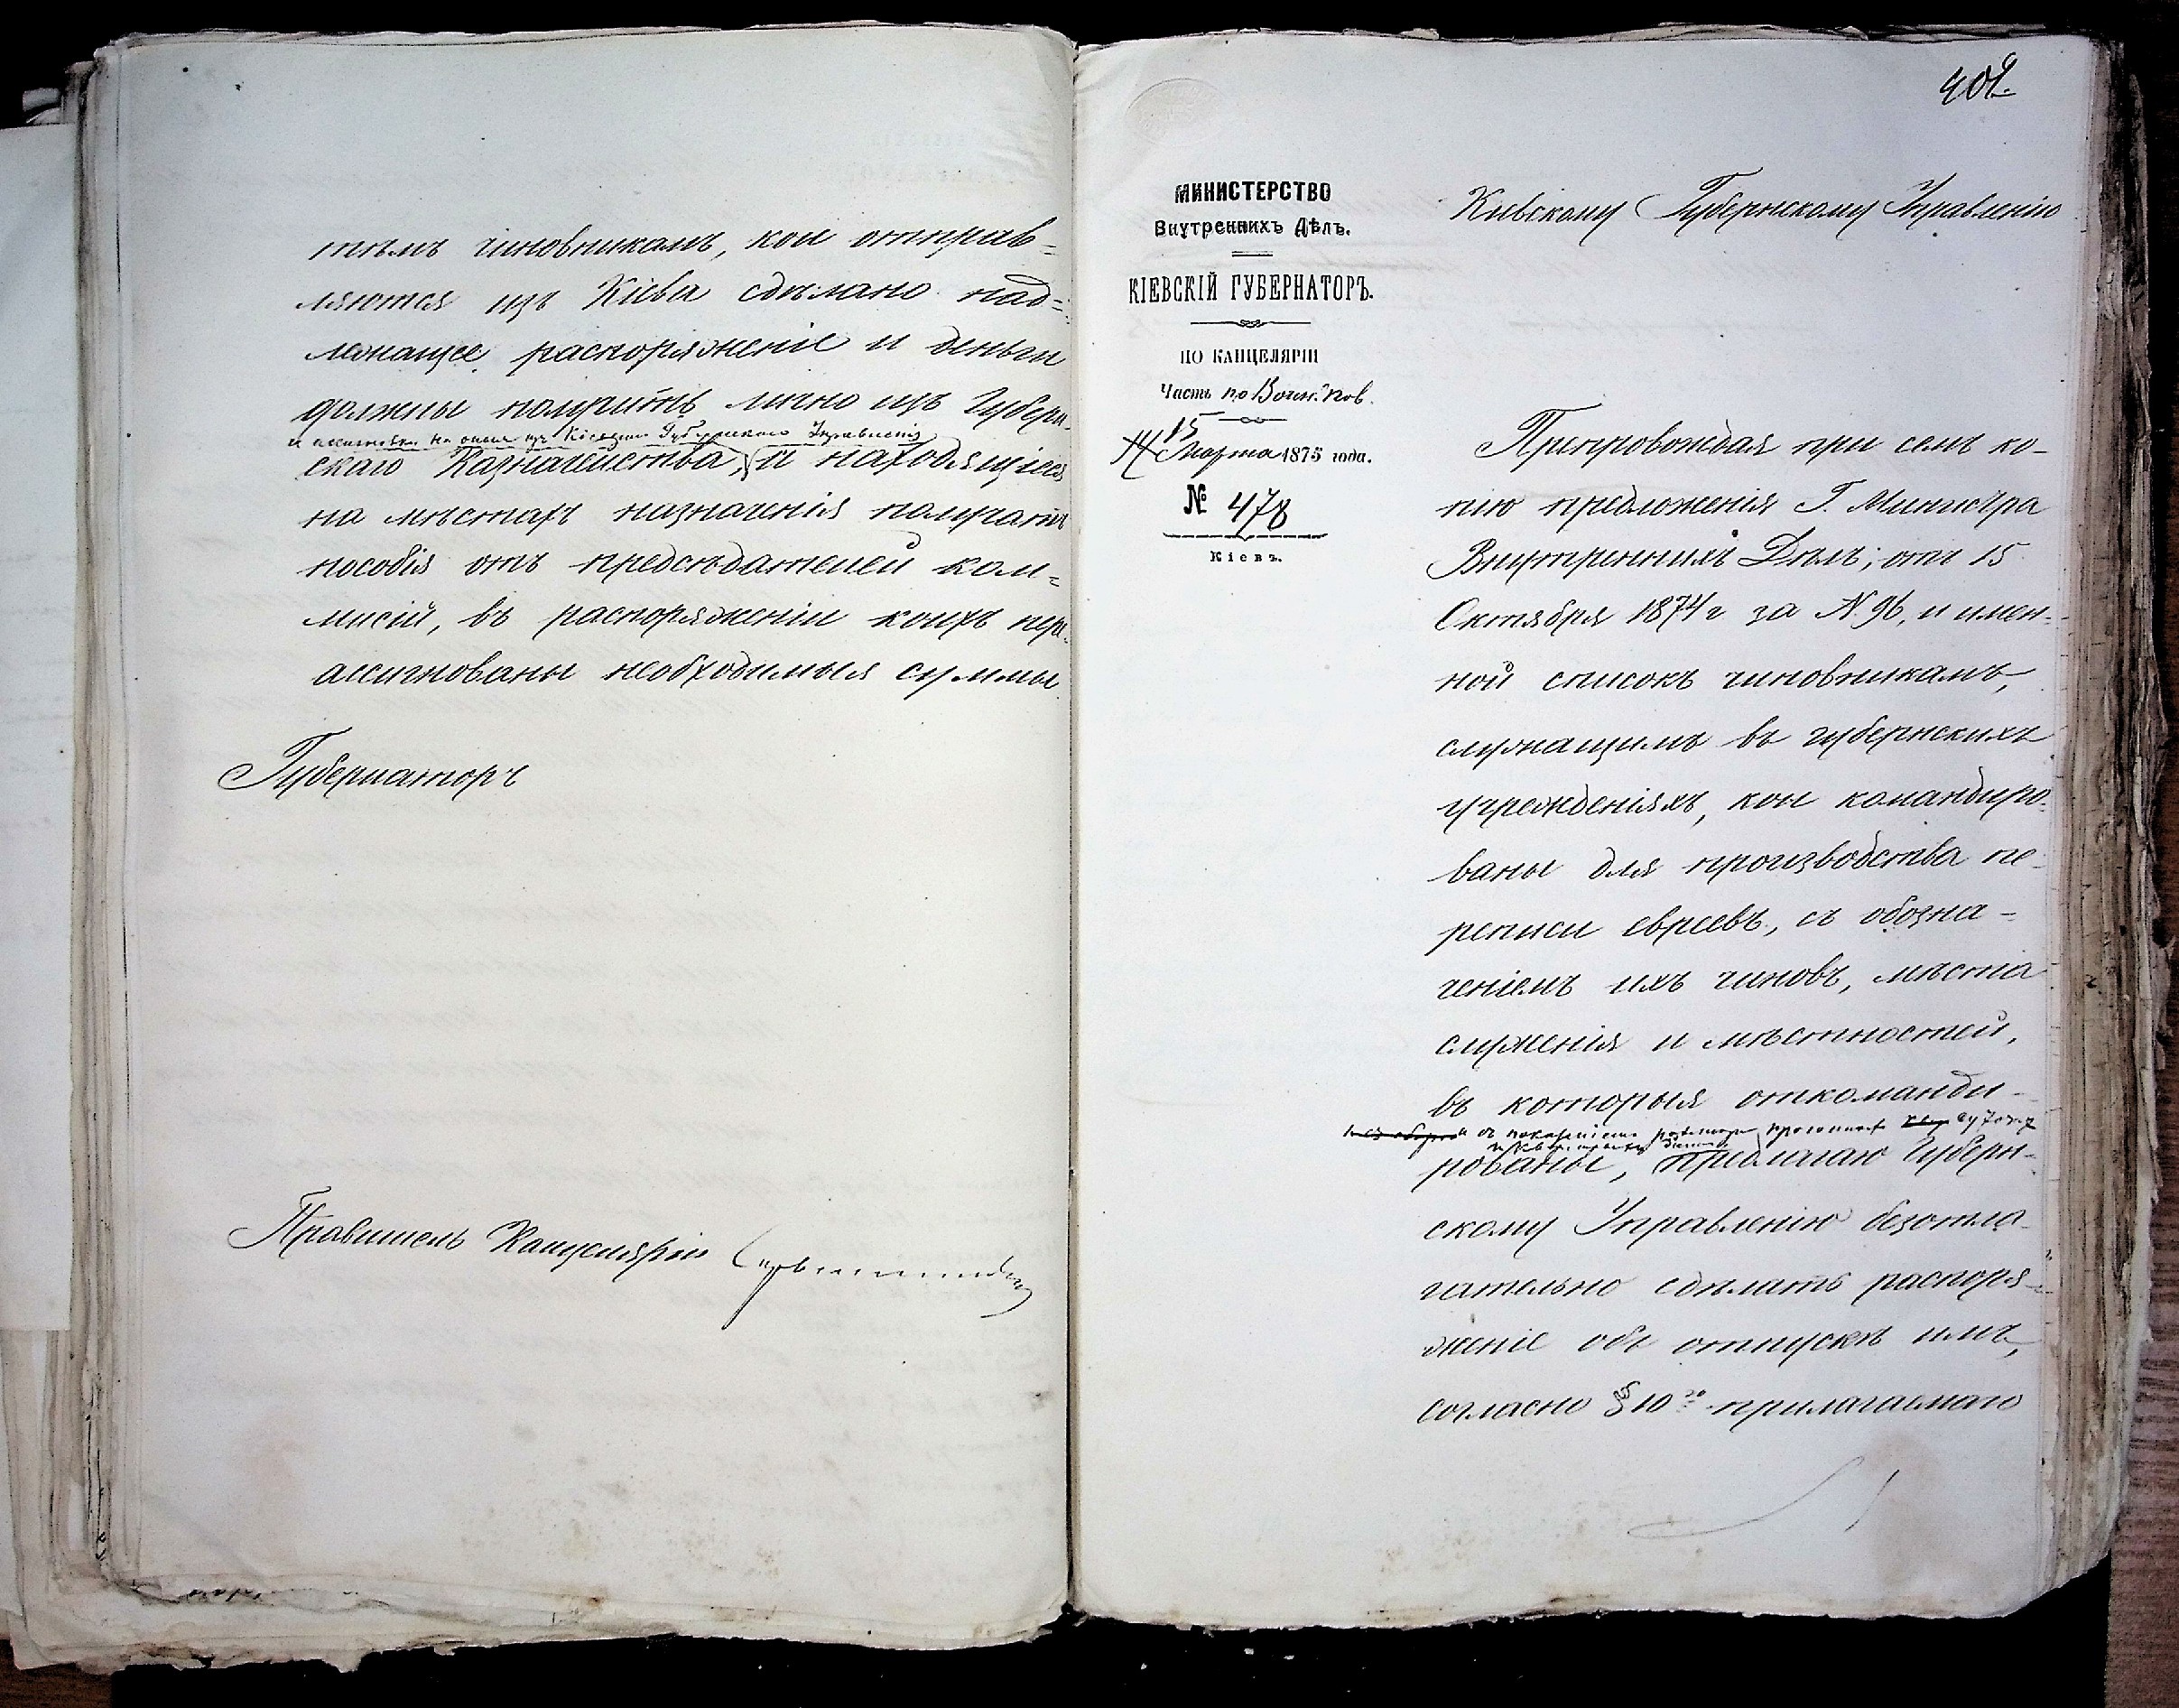 тѣмъ чиновникамъ, кои отправ=
ляются изъ Кіева сдѣлано над=
лежащее распоряженіе и деньги
должны получить лично изъ Губерн-
и ассигновки на оныя изъ Кіевскаго Губернскаго Управленія
скаго Казначейства, а находящіеся
на мѣстахъ назначенія получатъ
пособія отъ предсѣдателей ком=
мисій, въ распоряженіи коихъ пере-
ассигнованы необходимыя суммы.
Губернаторъ
Правитель Канцеляріи
409.
МИНИСТЕРСТВО
Внутреннихъ Дѣлъ.
КІЕВСКІЙ ГУБЕРНАТОРЪ.
ПО КАНЦЕЛЯРІИ
Часть по Воин. Пов.
15
14 Марта 1875 года.
№ 478
Кіевъ.
Кіевскому Губернскому Управленію
Препровождая при семъ ко-
пію предложенія Г. Министра
Внутреннихъ Дѣлъ, отъ 15
Октября 1874 г за N. 96, и имен-
ной списокъ чиновникамъ,
служащимъ въ губернскихъ
учрежденіяхъ, кои командиро-
ваны для производства пе-
реписи евреевъ, съ обозна-
ченіемъ ихъ чиновъ, мѣста
служенія и мѣстностей,
въ которыя откоманди-
и съ показаніемъ прогонныхъ
рованы, предлагаю Губерн-
скому Управленію безотла-
гательно сдѣлать распоря-
женіе объ отпускѣ имъ,
согласно § 10го прилагаемаго